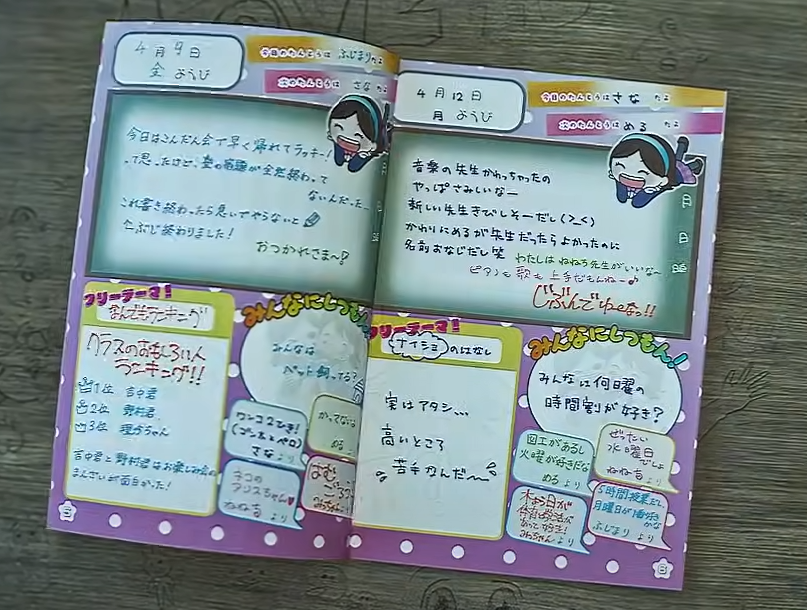 4月9日
金ようび
今日のたんとうは ふじまり だよ
次のたんとうは さな だよ
今日はこんだん会で早く帰れてラッキー!
って思ったけど、塾の宿題が全然終わって
ないんだった…
これ書き終わったら急いでやらないと
ぶじ終わりました!
おつかれさま〜?
フリーテーマ!
なんでもランキング
クラスのおもしろい人
ランキング!!
1位 吉中君
2位 野村君
3位 理香ちゃん
吉中君と野村君はお楽しみ会の
まんざいが面白かった!
みんなにしつもん!
みんなは
ペット飼ってる?
ワンコ2ひき!
さなより
かってない
めるより
ネコの
アリスちゃん♥
ねねちより
はむ
4月12日
月ようび
今日のたんとうは さな だよ
次のたんとうは める だよ
音楽の先生かわっちゃったの
やっぱさみしいなー
新しい先生きびしそーだし(>_<)
かわりにめるが先生だったらよかったのに
名前おなじだし笑
わたしはねねち先生がいいな〜
ピアノも歌も上手だもんねー♪
じぶんでゆーなっ!!
フリーテーマ!
ナイショのはなし
実はアタシ、、、
高いところ
苦手なんだ〜
みんなにしつもん!
みんなは何曜の
時間割が好き?
図工があるし
火曜が好きだな
めるより
ぜったい
水曜日
でしょ
ねねちより
木よ日が
あって好き!
みっちゃんより
5時間授業だし、
月曜日が1番好き
かな
ふじまりより